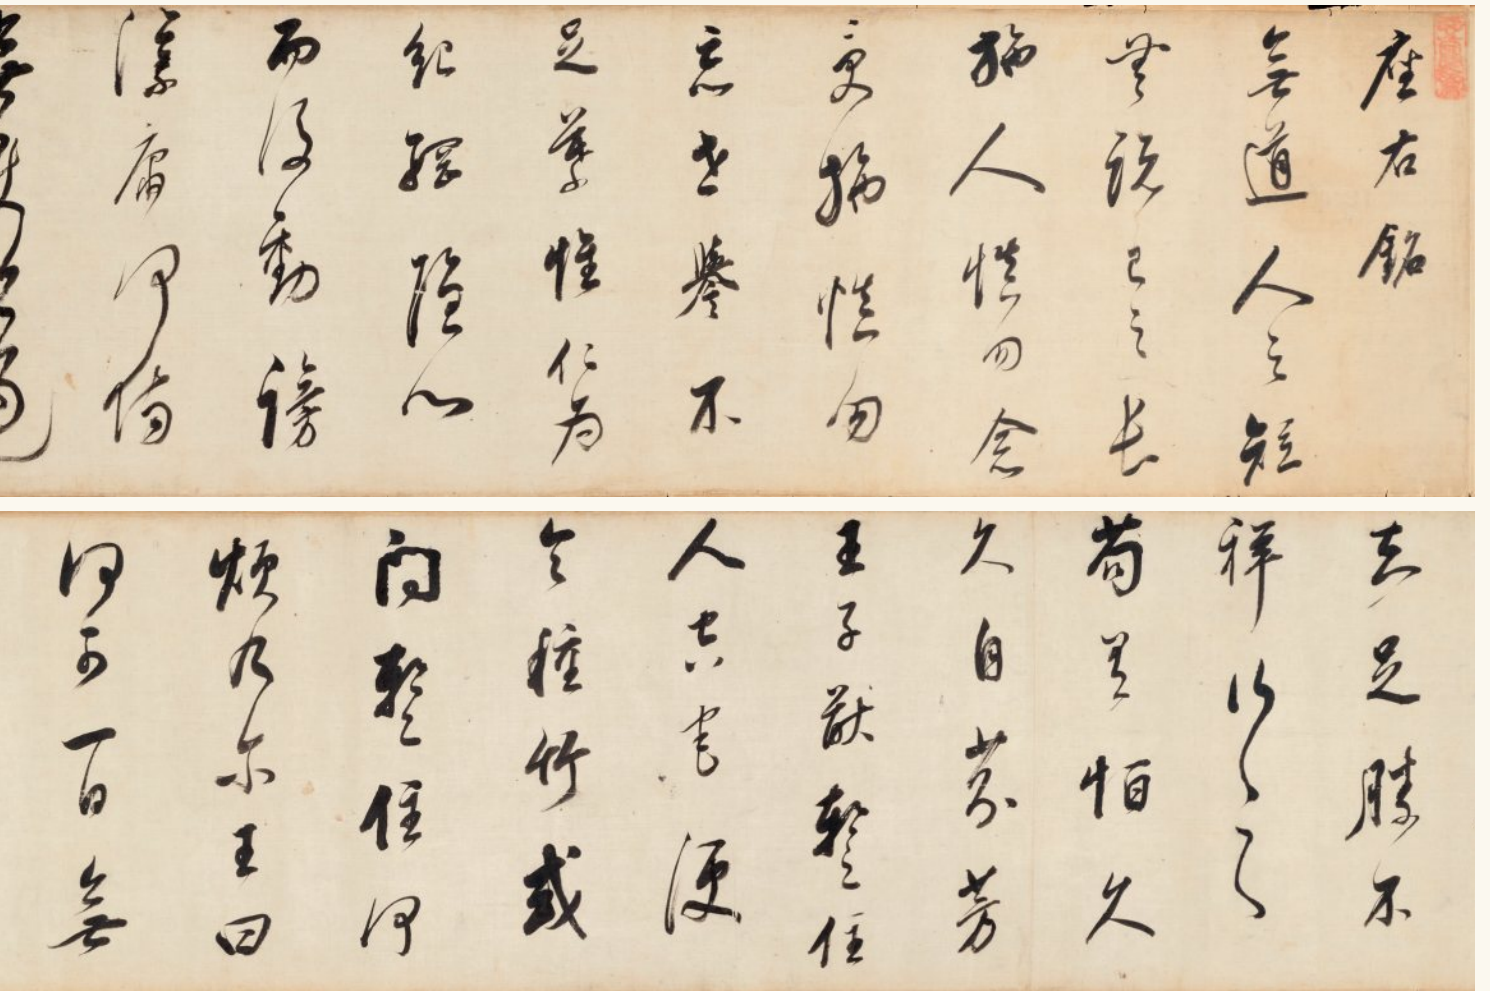 座右銘
無道人之短
無說己之長
施人慎勿念
受施慎勿
忘世譽不
足慕惟仁為
紀綱隱心
而後動謗
議庸何傷
無使名過
知足勝不
祥行之
苟有恒久
久自芬芳
王子猷暫住
人空宅便
令種竹或
問暫住何
煩乃爾王曰
何可一日無